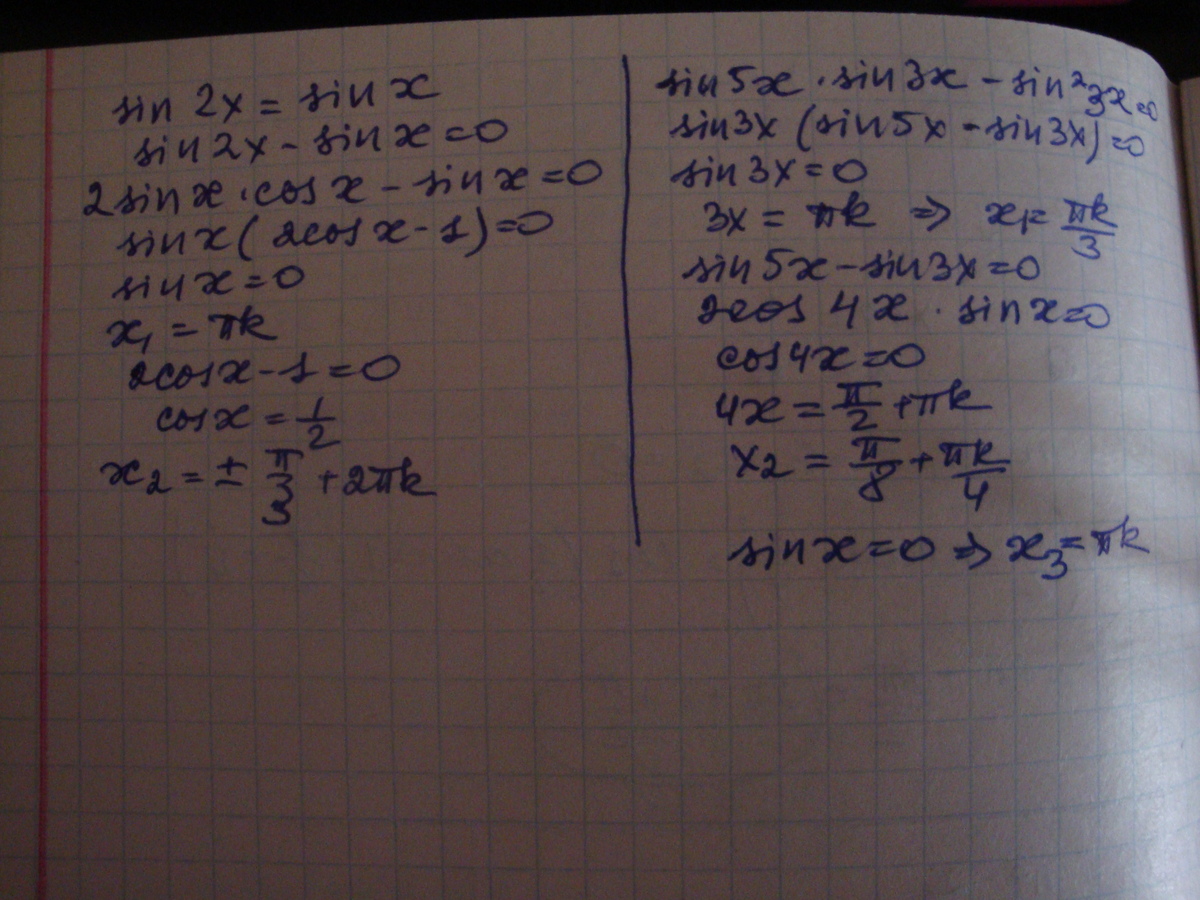 sin 2x = sin x
sin 2x - sin x = 0
2 sin x · cos x - sin x = 0
sin x ( 2cos x - 1) = 0
sin x = 0
x₁ = πk
2cos x - 1 = 0
cos x = 1/2
x₂ = ± π/3 + 2πk
sin 5x · sin 3x - sin² 3x = 0
sin 3x (sin 5x - sin 3x) = 0
sin 3x = 0
3x = πk ⇒ x₁ = πk/3
sin 5x - sin 3x = 0
2cos 4x · sin x = 0
cos 4x = 0
4x = π/2 + πk
x₂ = π/8 + πk/4
sin x = 0 ⇒ x₃ = πk